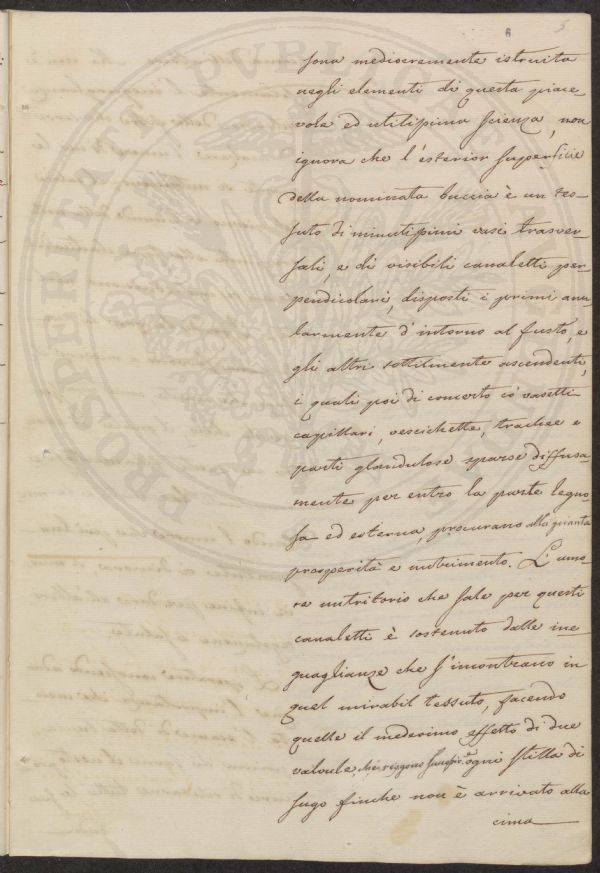 6 5
sona mediocremente istruita
negli elementi di questa piace-
vole ed utilissima scienza, non
ignora che l'esterior superficie
della nominata buccia è un tes-
suto di minutissimi vasi trasver-
sali, e di visibili canaletti per-
pendicolari, disposti i primi anu-
larmente d'intorno al fusto, e
gli altri sottilmente ascendenti,
i quali poi di concerto co' vasetti
capillari, vescichette, trachee e
parti glandulose sparse diffusa-
mente per entro la parte legno-
sa ed esterna, procurano alla pianta
prosperità e nutrimento. L'umo-
re nutritorio che sale per questi
canaletti è sostenuto dalle ine-
guaglianze che s'incontrano in
quel mirabil tessuto, facendo
quelle il medesimo effetto di due
valvole, che reggono ogni stilla di
sugo finche non è arrivato alla
cima
PROSPERITATI PUBLICAE